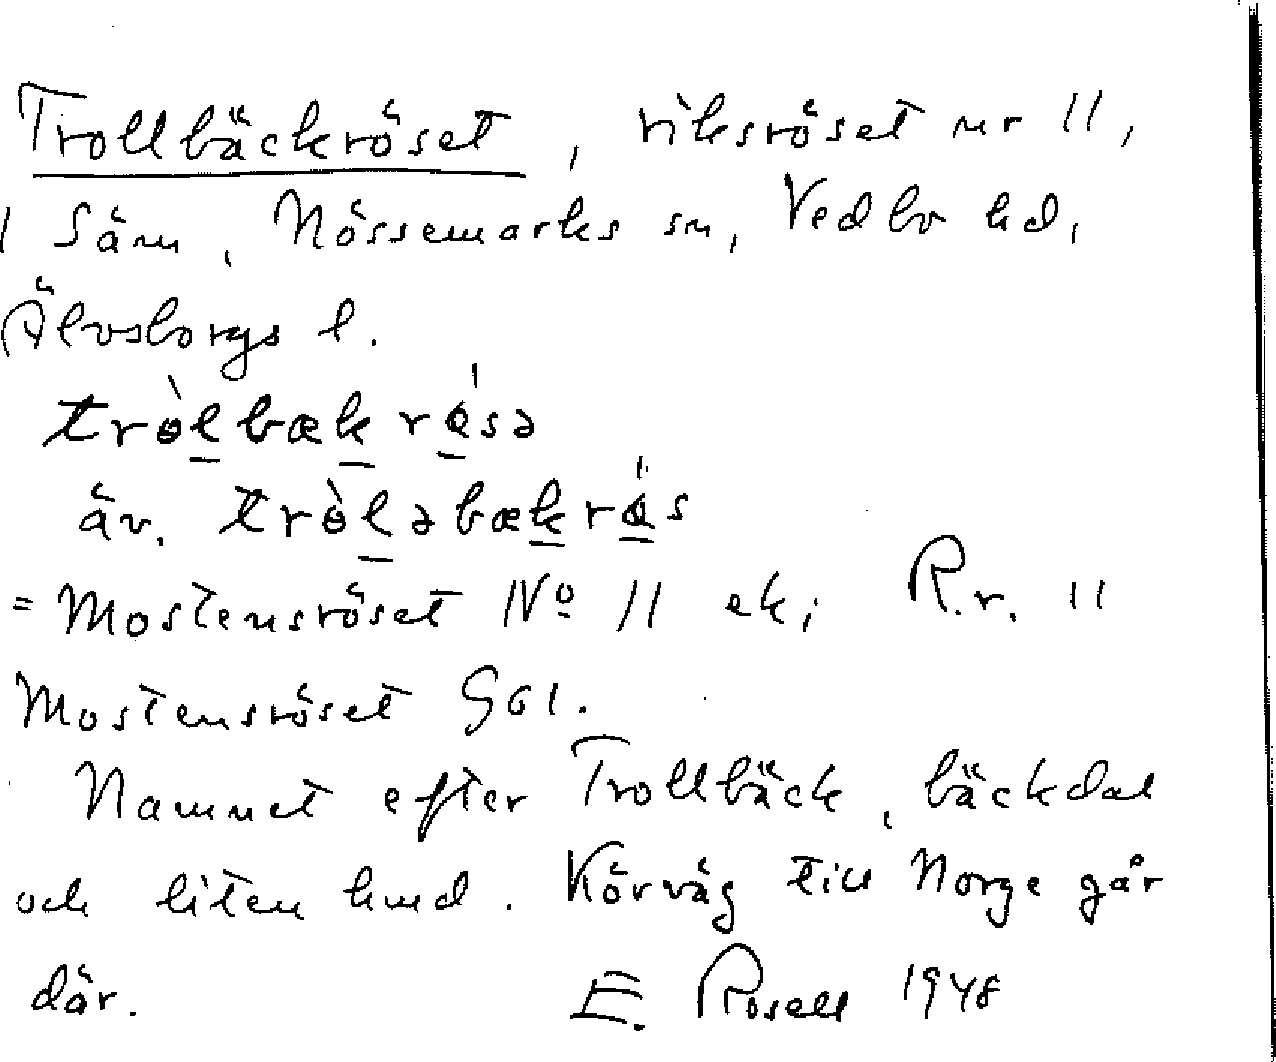 Trollbäckröset, riksröset nr 11,
i Säm, Nössemarks sn, Vedbo hd,
Älvsborgs l.
tròlbækrǿsə
äv. tròləbækrǿs
= Mostensröset No 11 ek; R.r. 11
Mostensröset Göl.
Namnet efter Trollbäck, bäckdal
och liten lund. Körväg till Norge går
där. E. Rosell 1948